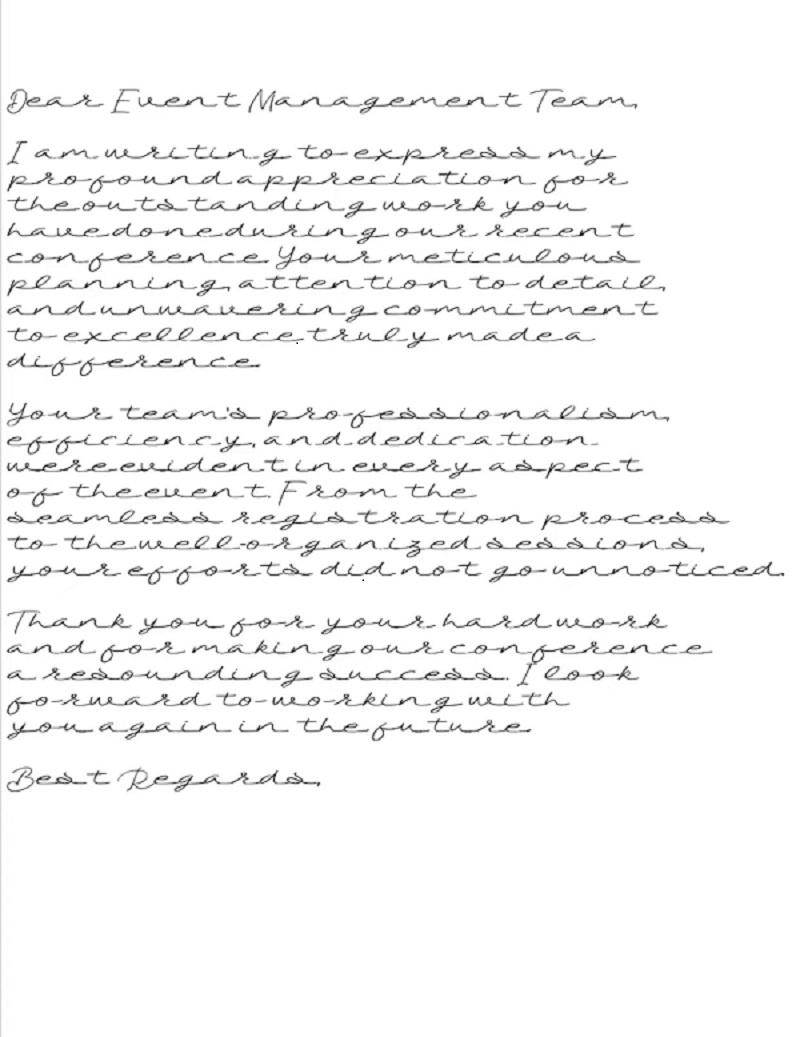 Dear Event Management Team,
I am writing to express my
profound appreciation for
the outstanding work you
have done during our recent
conference. Your meticulous
planning, attention to detail,
and unwavering commitment
to excellence truly made a
difference.
Your team's professionalism,
efficiency, and dedication
were evident in every aspect
of the event. From the
seamless registration process
to the well-organized sessions,
your efforts did not go unnoticed.
Thank you for your hard work
and for making our conference
a resounding success. I look
forward to working with
you again in the future.
Best Regards,